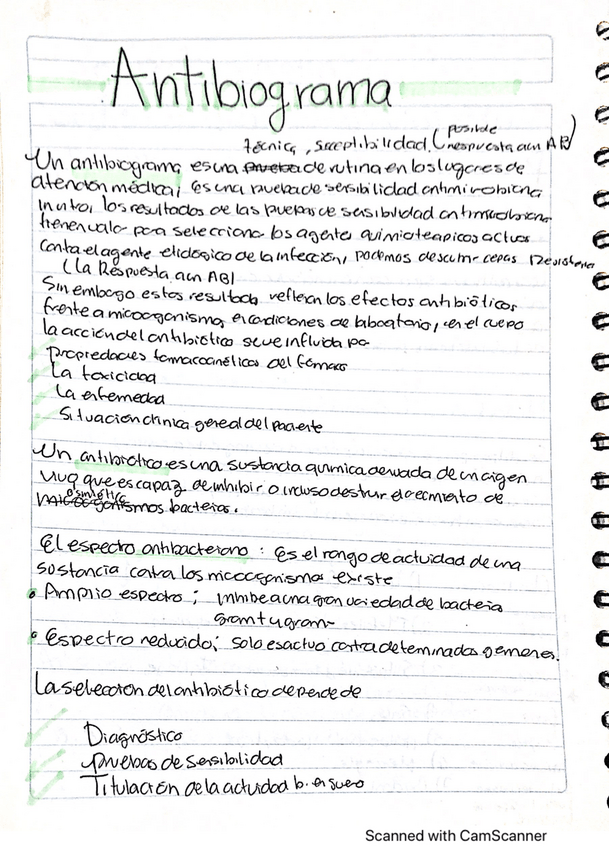 Antibiograma
técnica, suceptibilidad. (posible respuesta a un AB)
Un antibiograma es una prueba de rutina en los lugares de
atención médica, es una prueba de sensibilidad antimicrobiana
in vitro, los resultados de las pruebas de sensibilidad antimicrobiana
tienen valor para seleccionar los agentes quimioterapicos activos
contra el agente etiológico de la infección, podemos descubrir cepas resistentes
(la Respuesta a un AB)
Sin embargo estos resultados reflejan los efectos antibióticos
frente a microorganismos en condiciones de laboratorio, en el cuerpo
la acción del antibiótico se ve influida por
propiedades farmacocinéticos del fármaco
La toxicidad
La enfermedad
Situación clínica general del paciente
Un antibiótico es una sustancia química derivada de un organismo
vivo que es capaz de inhibir o incluso destruir el crecimiento de
o sintético
microorganismos bacterias.
El espectro antibacteriano : Es el rango de actividad de una
sustancia contra los microorganismos existe
• Amplio espectro ; inhibe a una gran variedad de bacteria
gram + y gram -
• Espectro reducido; solo es activo contra determinados gérmenes.
La selección del antibiótico depende de
Diagnóstico
pruebas de sensibilidad
Titulación de la actividad b. en suero
Scanned with CamScanner